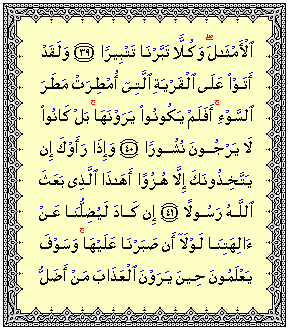 ٱلۡأَمۡثَٰلَۖ وَكُلّٗا تَبَّرۡنَا تَتۡبِيرٗا ۝٣٩ وَلَقَدۡ
أَتَوۡاْ عَلَى ٱلۡقَرۡيَةِ ٱلَّتِيٓ أُمۡطِرَتۡ مَطَرَ
ٱلسَّوۡءِۚ أَفَلَمۡ يَكُونُواْ يَرَوۡنَهَاۚ بَلۡ كَانُواْ
لَا يَرۡجُونَ نُشُورٗا ۝٤٠ وَإِذَا رَأَوۡكَ إِن
يَتَّخِذُونَكَ إِلَّا هُزُوًا أَهَٰذَا ٱلَّذِي بَعَثَ
ٱللَّهُ رَسُولًا ۝٤١ إِن كَادَ لَيُضِلُّنَا عَنۡ
ءَالِهَتِنَا لَوۡلَآ أَن صَبَرۡنَا عَلَيۡهَاۚ وَسَوۡفَ
يَعۡلَمُونَ حِينَ يَرَوۡنَ ٱلۡعَذَابَ مَنۡ أَضَلُّ